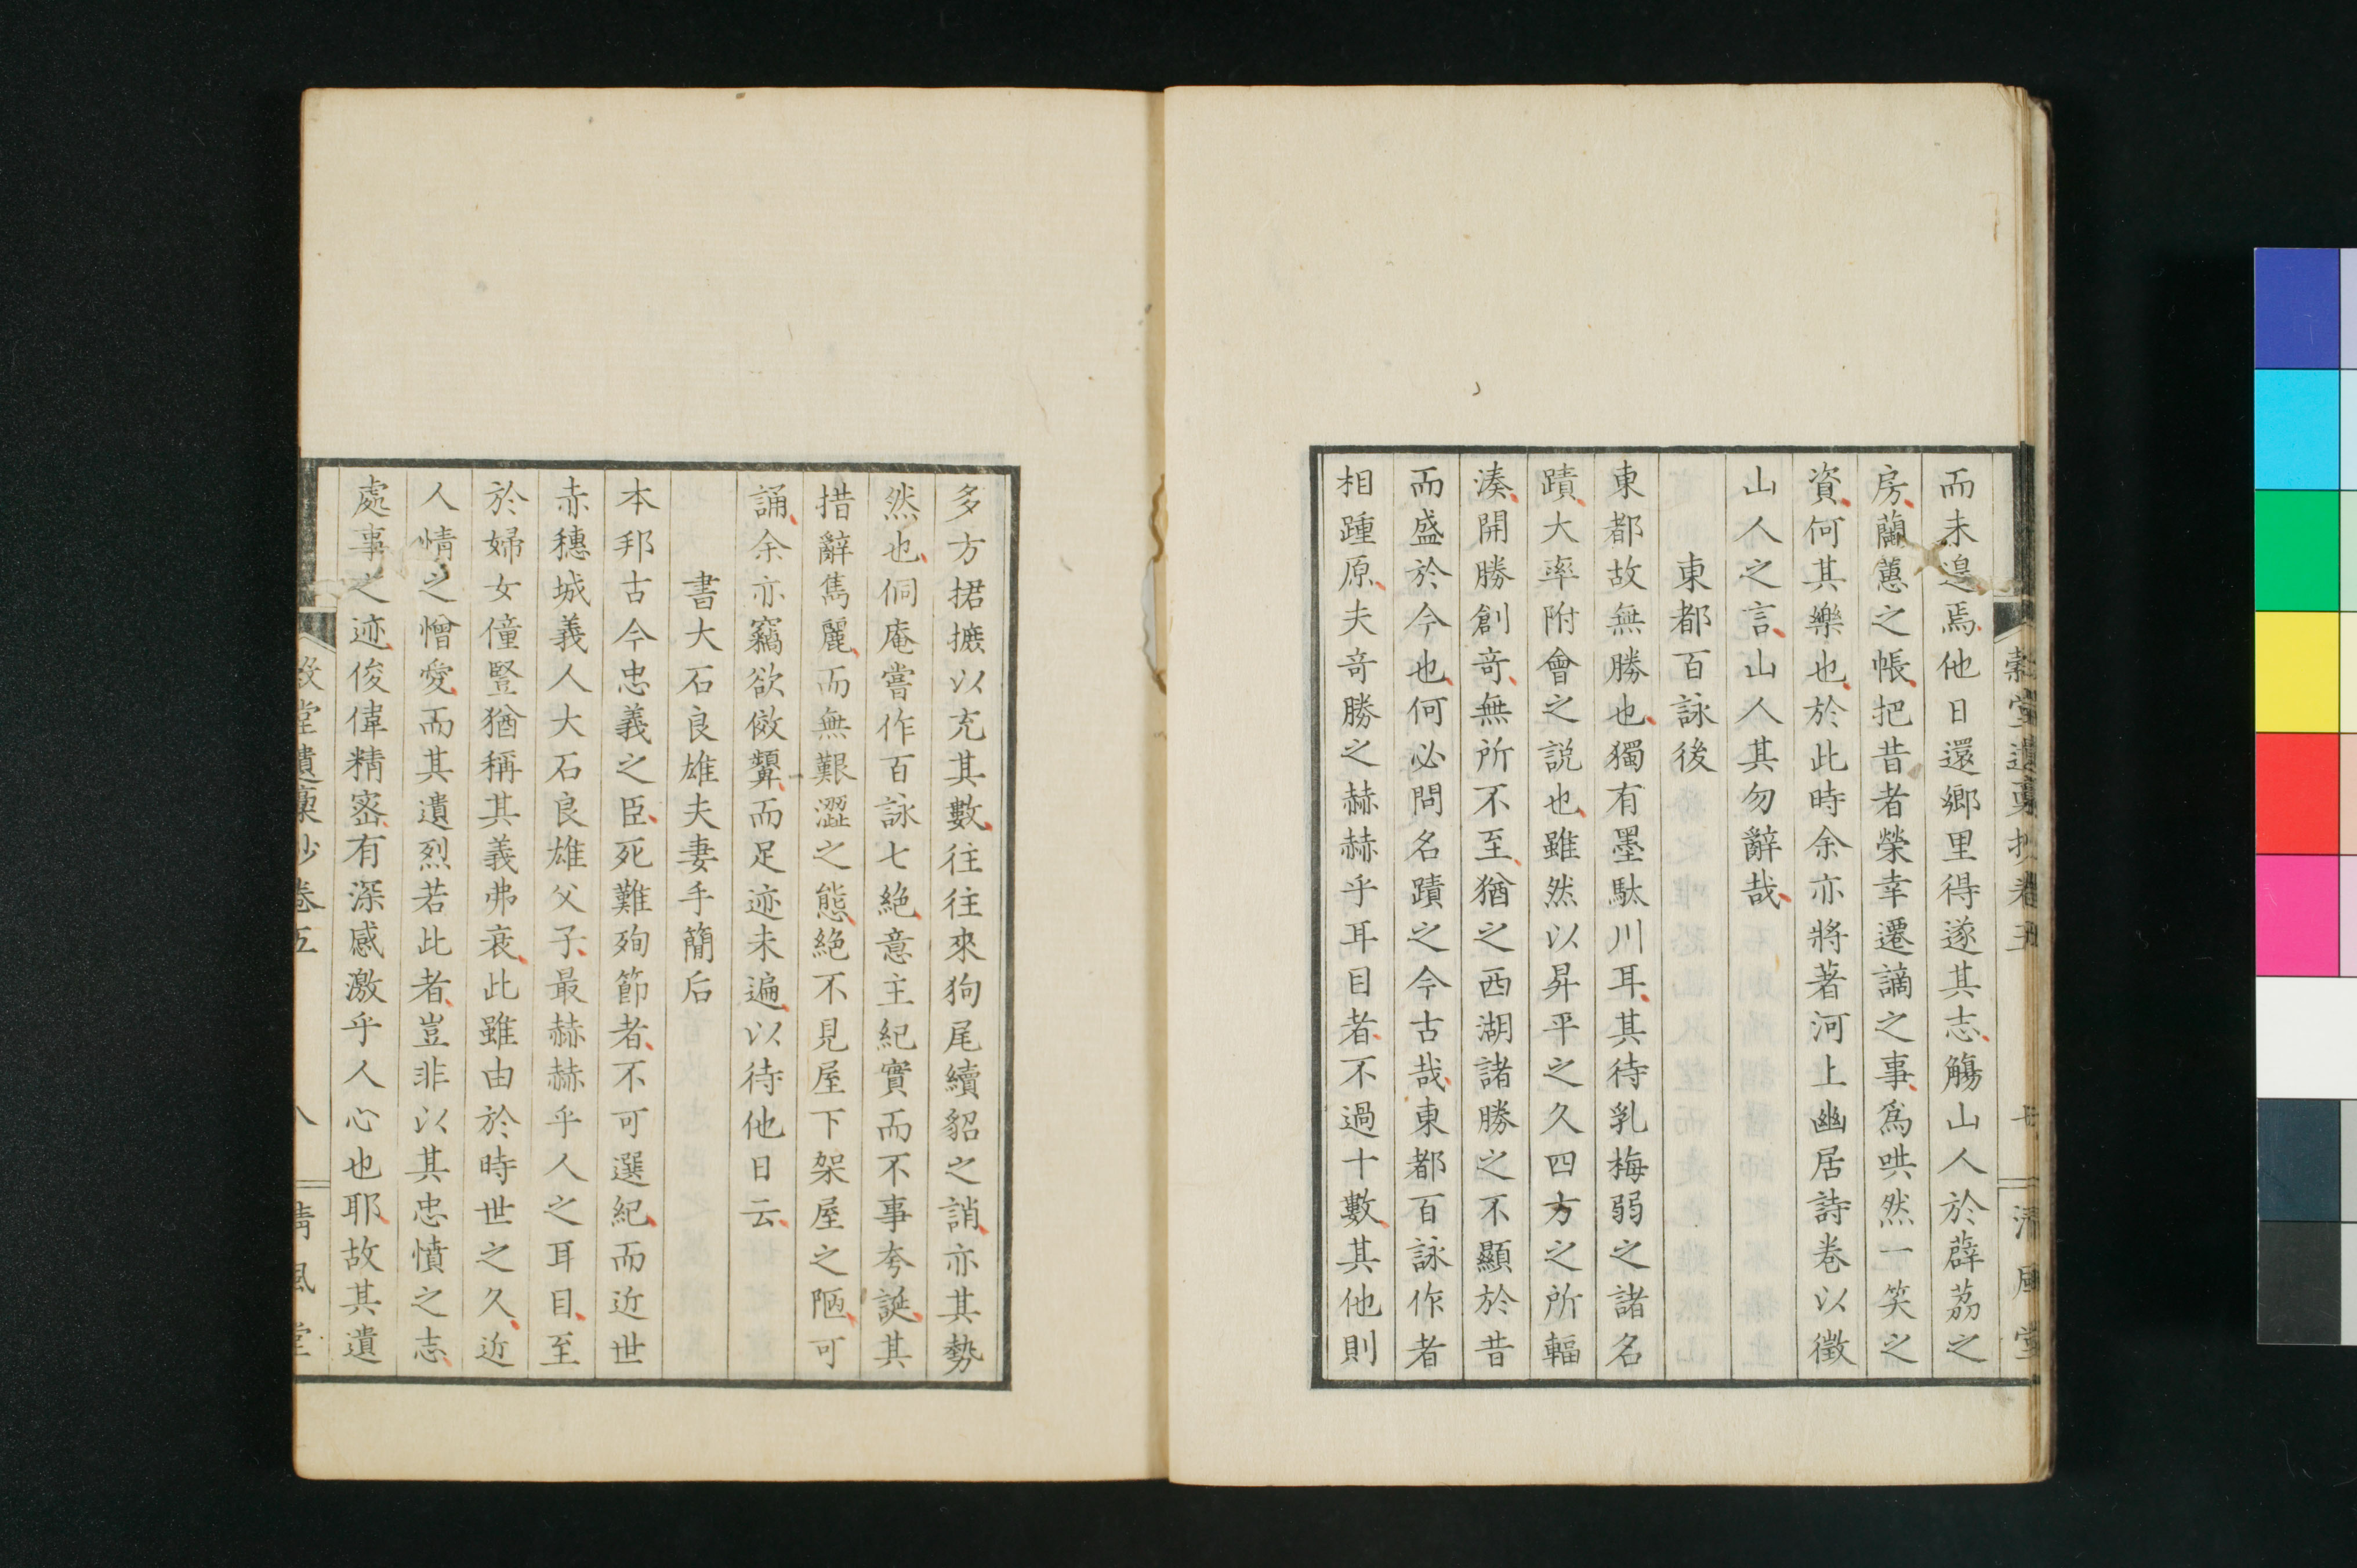 而未遑焉他日還鄉里得遂其志觴山人於薜荔之
房蘭蕙之帳把昔者榮幸遷謫之事爲哄然一笑之
資何其樂也於此時余亦將著河上幽居詩卷以徵
山人之言山人其勿辭哉
東都百詠後
東都故無勝也獨有墨駄川耳其待乳梅弱之諸名
蹟大率附會之説也雖然以昇平之久四方之所輻
湊開勝創奇無所不至猶之西湖諸勝之不顯於昔
而盛於今也何必問名蹟之今古哉東都百詠作者
相踵原夫奇勝之赫赫乎耳目者不過十數其他則
多方捃摭以充其數往往來狗尾續貂之誚亦其勢
然也侗庵嘗作百詠七絶意主紀實而不事夸誕其
措辭雋麗而無艱澀之態絶不見屋下架屋之陋可
誦余亦竊欲傚顰而足迹未遍以待他日云
書大石良雄夫妻手簡后
本邦古今忠義之臣死難殉節者不可選紀而近世
赤穗城義人大石良雄父子最赫赫乎人之耳目至
於婦女僮豎猶稱其義弗衰此雖由於時世之久近
人情之憎愛而其遺烈若此者豈非以其忠憤之志
處事之迹俊偉精密有深感激乎人心也耶故其遺
堂遺稾抄卷五 八 清風堂